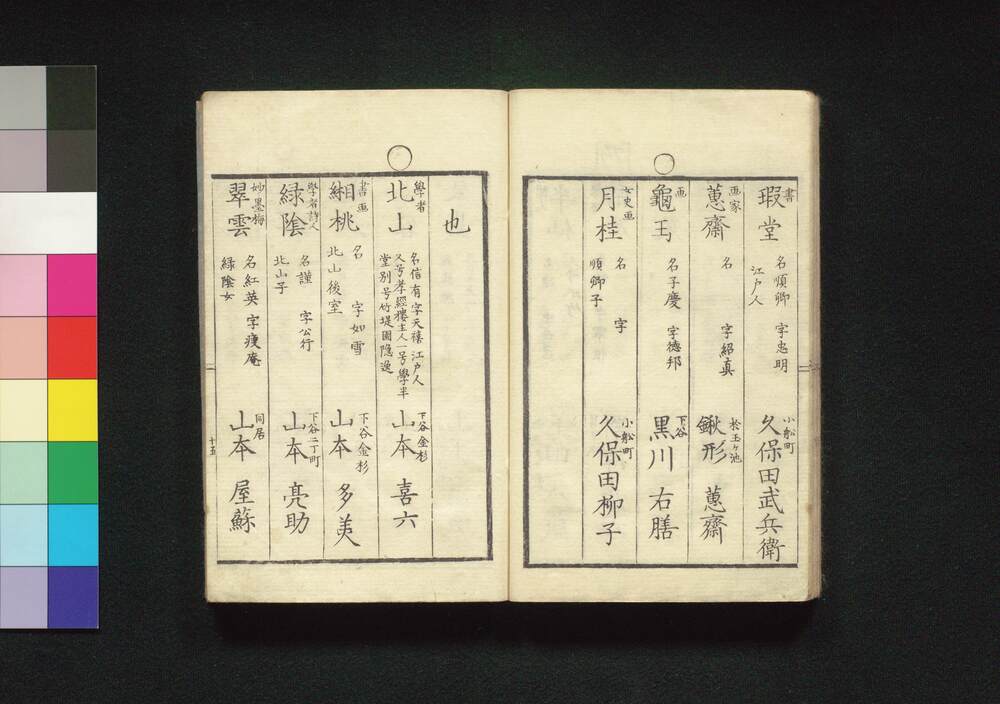 書
瑕堂
名順卿 字忠明
江戸人
小舩町
久保田武兵衛
画家
蕙齋
名 字紹真
於玉ヶ池
鍬形 蕙齋
画
龜玉
名子慶 字德邦
下谷
黒川 右膳
女史画
月桂
名 字
順卿子
小舩町
久保田柳子
也
學者
北山
名信有 字天禧 江戸人
又号孝經樓主人一号學半
堂別号竹堤園隠逸
下谷金杉
山本 喜六
書画
緗桃
名 字如雪
北山後室
下谷金杉
山本 多美
學者詩人
緑陰
名謹 字公行
北山子
下谷二丁町
山本 亮助
妙墨梅
翠雲
名紅英 字痩庵
緑陰女
同居
山本 屋蘇
十五